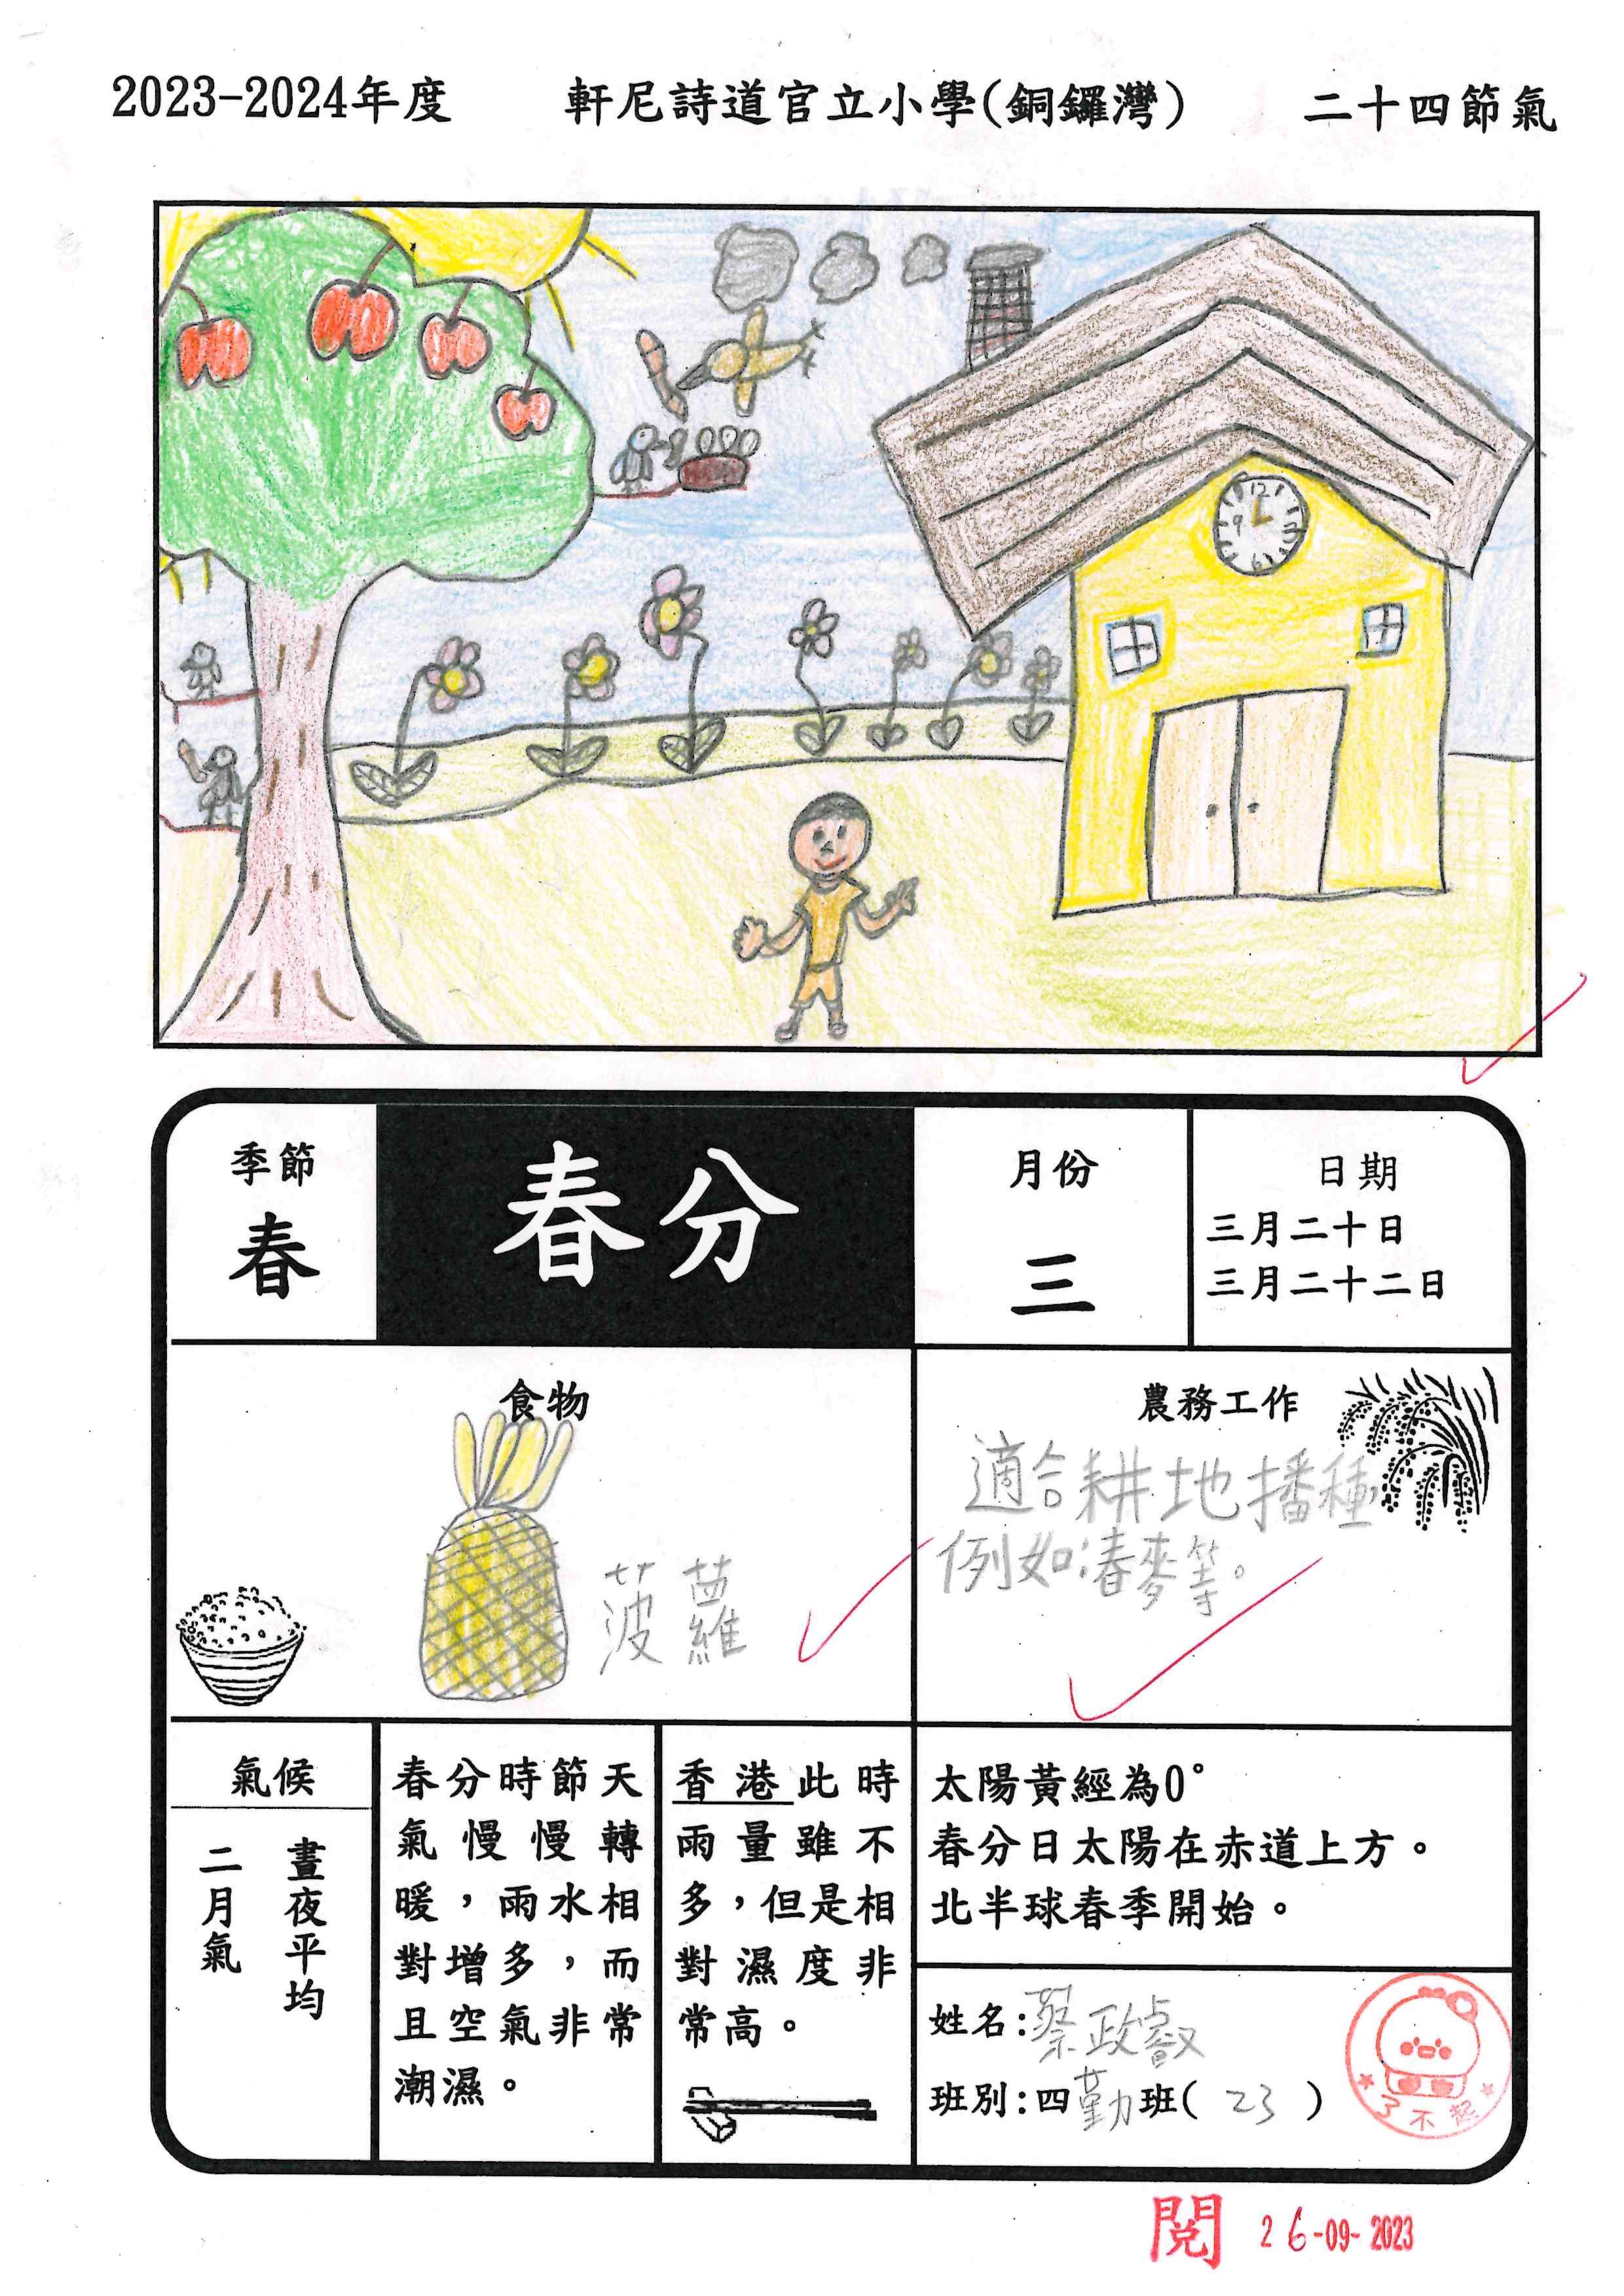 2023-2024年度 軒尼詩道官立小學(銅鑼灣) 二十四節氣
12
3
6
9
季節
春
春分
月份
三
日期
三月二十日
三月二十二日
食物
菠蘿
農務工作
適合耕地播種,
例如:春麥等。
氣候
晝夜平均
二月氣
春分時節天
氣慢慢轉
暖，雨水相
對增多，而
且空氣非常
潮濕。
香港此時
雨量雖不
多，但是相
對濕度非
常高。
太陽黃經為0°
春分日太陽在赤道上方。
北半球春季開始。
姓名:蔡政叡
班別:四勤班( 23 )
了不起
閱 26-09-2023